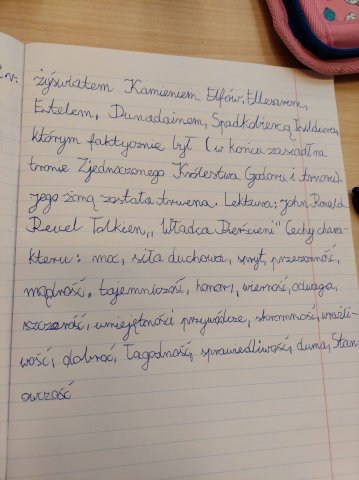 żyświatem Kamieniem Elfów, Ellesarem,
Estelem, Dunadainem, Spadkobiercą Isildura,
którym faktycznie był (w końcu zasiadł na
tronie Zjednoczonego Królestwa Gondoru i Arnoru).
jego żoną została Arwena. Lektura: John Ronald
Reuel Tolkien, "Władca Pierścieni" Cechy chara-
kteru: moc, siła duchowa, spryt, przezorność,
mądrość, tajemniczość, honor, wierność, odwaga,
szczerość, umiejętności przywódcze, skromność, wrażli-
wość, dobroć, łagodność, sprawiedliwość, duma, Stan
owczość